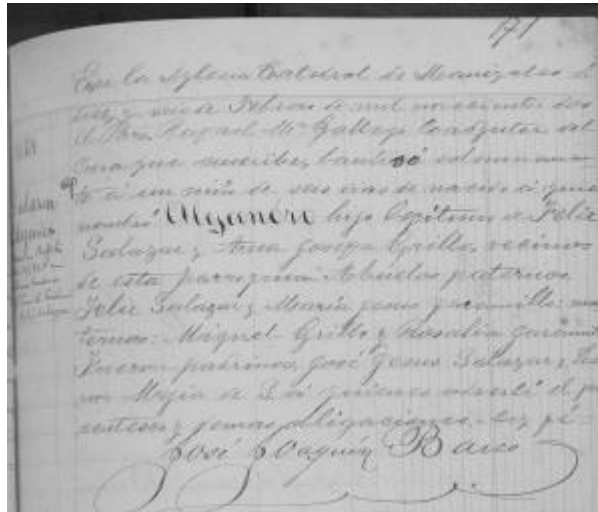 171
En la Iglesia Catedral de Manizales á
diez y seis de Febrero de mil novecientos dos
el Pbro. Rafael Mª Gallego Coadjutor del
Cura que suscribe, bautizó solemnemen
te á un niño de seis días de nacido á quien
nombró Alejandro hijo legítimo de Felix
Salazar y Ana Josefa Grillo, vecinos
de esta parroquia. Abuelos paternos
Felix Salazar y María Jesus Jaramillo: ma
ternos: Miguel Grillo y Rosalía Jaramillo
Fueron padrinos José Jesus Salazar y
Mejía de S. á quienes advertí el pa
rentesco y demas obligaciones. Doy fé =
José Joaquín Barco
Salazar
Alejandro